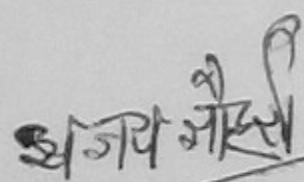 अजय मौर्य